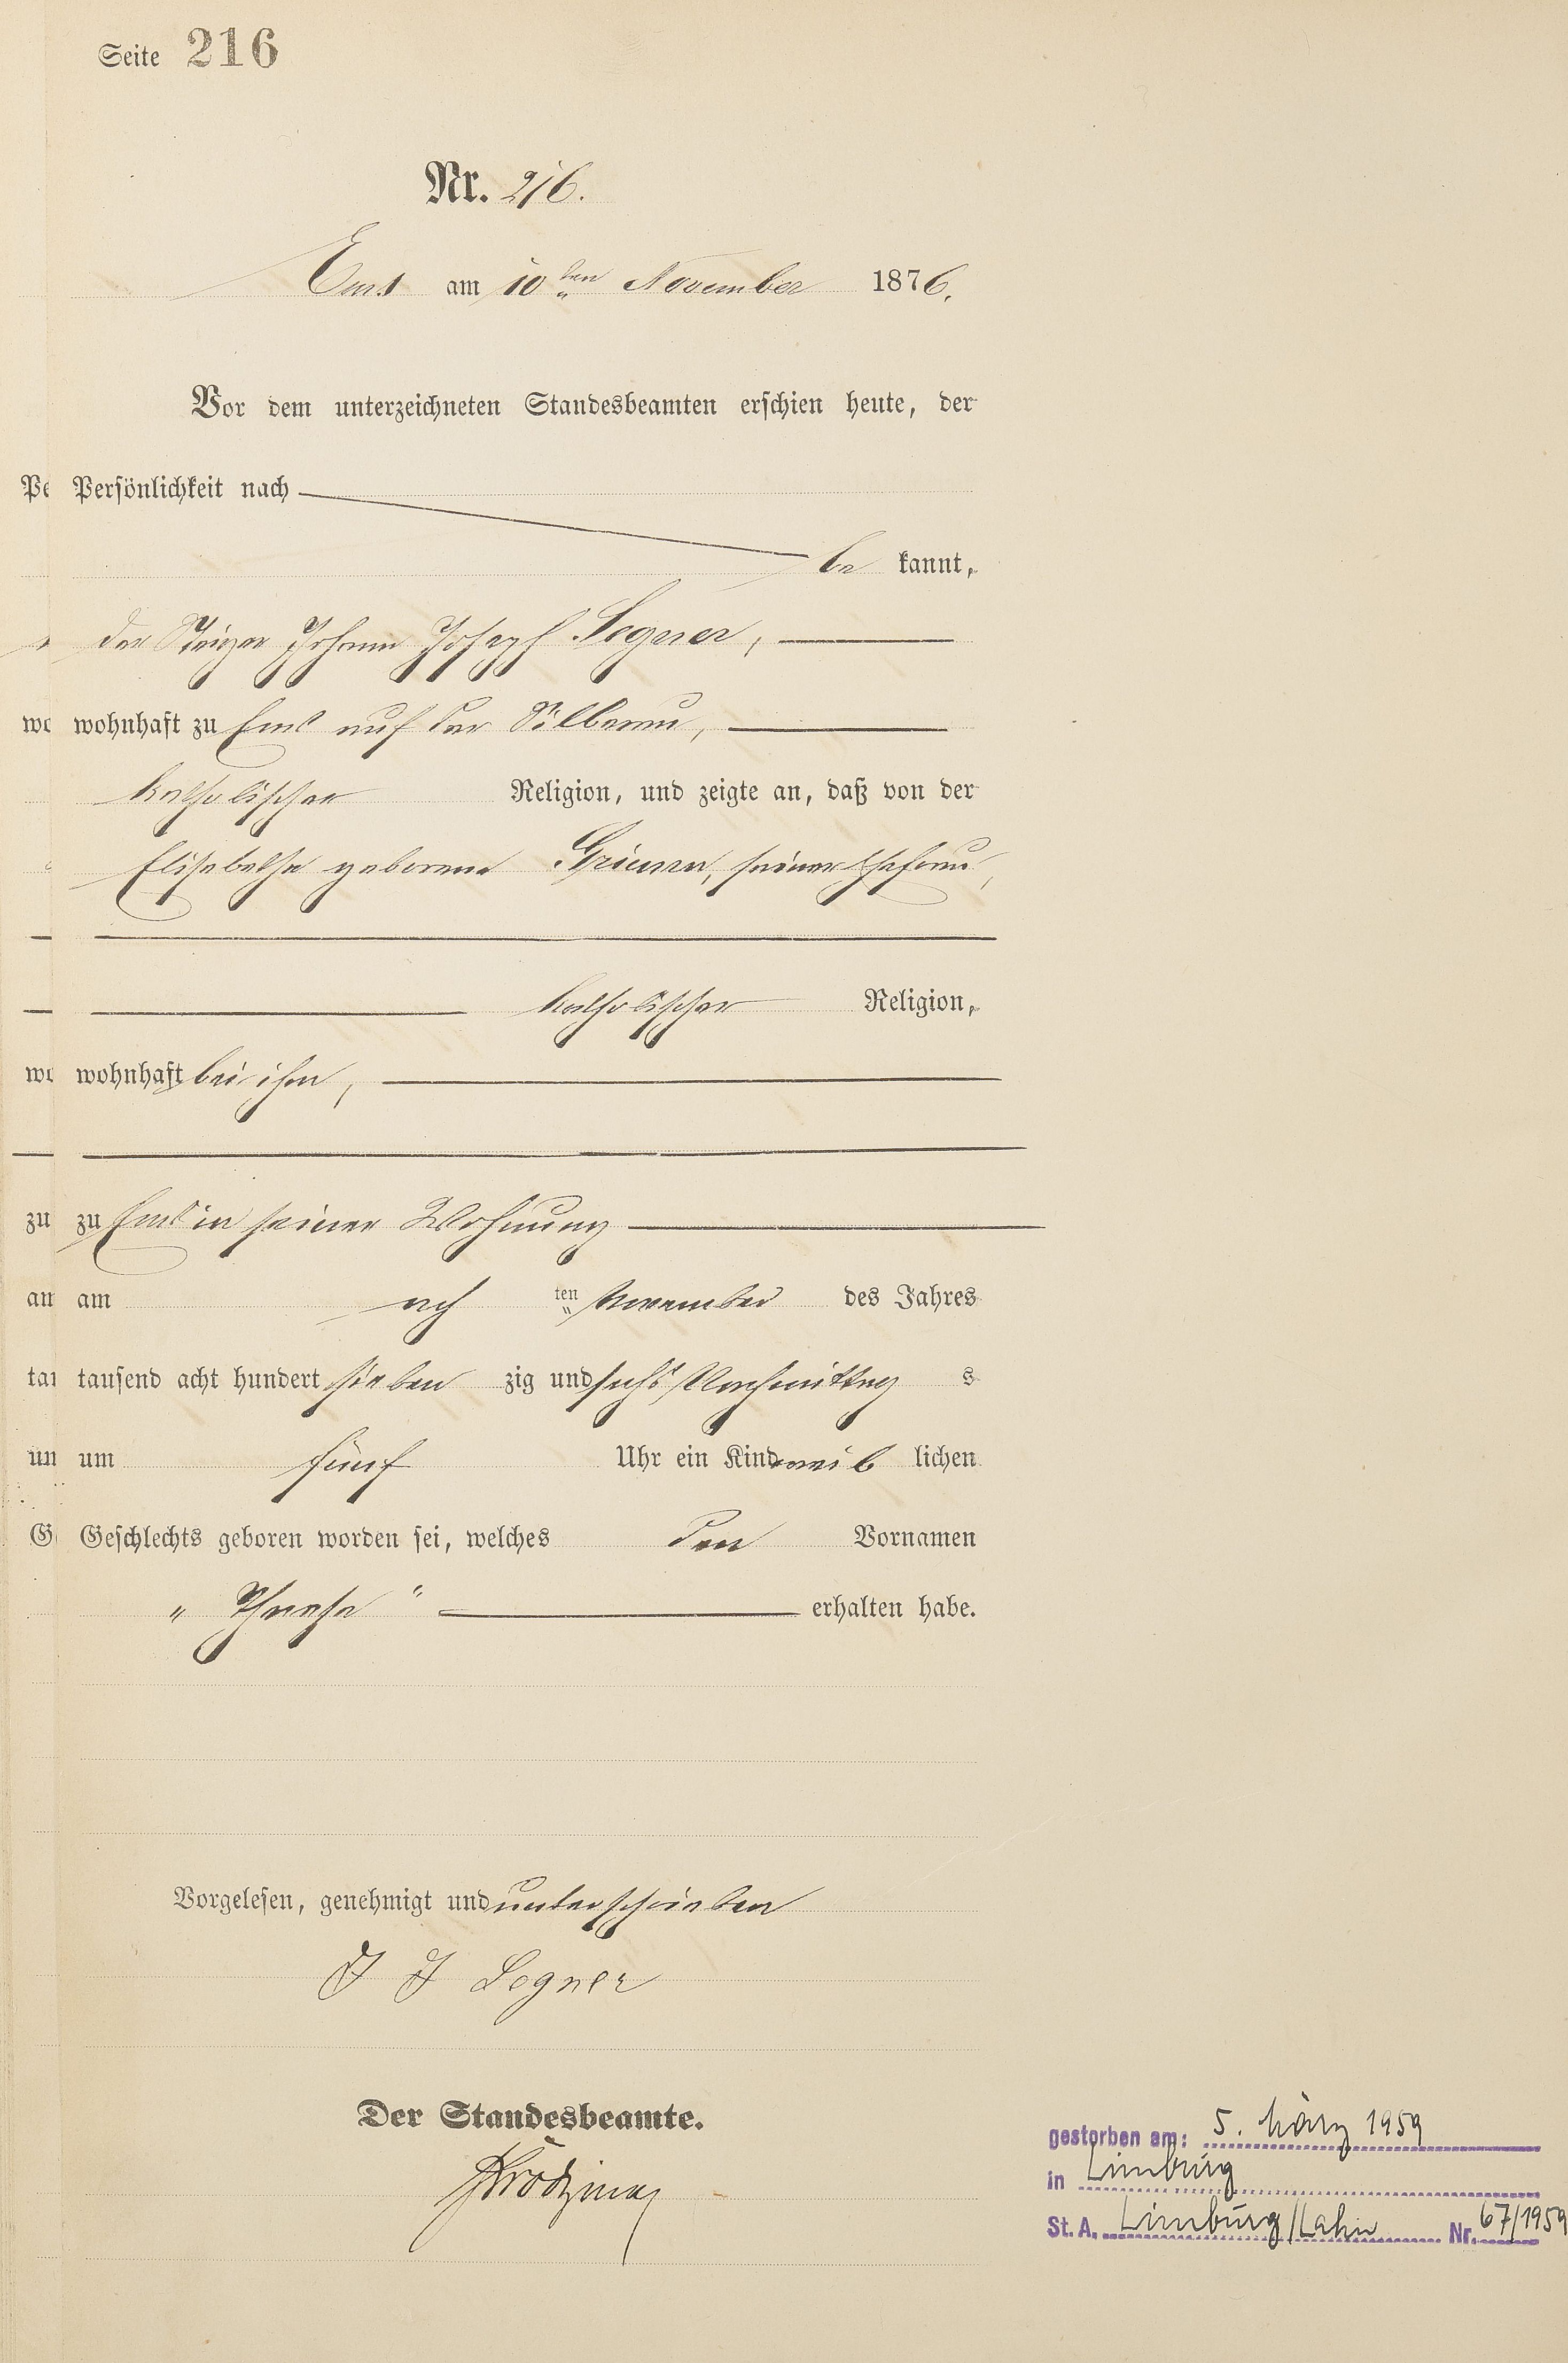 Seite 216
Nr. 216.
Ems am 10ten November 1876.
Vor dem unterzeichneten Standesbeamten erschien heute, der
Pe Persönlichkeit nach
be kannt,
der Steiger Johann Joseph Legner,
wo wohnhaft zu Ems auf der Silberau,
katholischer Religion, und zeigte an, daß von der
Elisabetha geborene seiner Ehefrau,
katholischer Religion,
wo wohnhaft bei ihm,
zu zu Ems in seiner Wohnung
am am ach ten November des Jahres
tau tausend acht hundert sieben zig und sechs Nachmittag s
um um fünf Uhr ein Kind weib lichen
G Geschlechts geboren worden sei, welches den Vornamen
„ Therese " erhalten habe.
Vorgelesen, genehmigt und unterschrieben
J J Legner
Der Standesbeamte.
gestorben am: 5. März 1959
in Limburg
St. A. Limburg/Lahn Nr. 67/1959